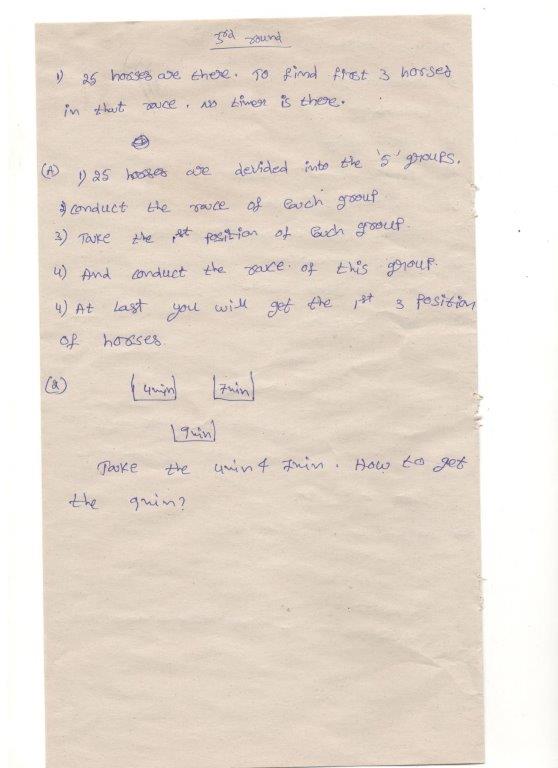 3rd round
1) 25 horses are there. To find first 3 horses
in that race. no timer is there.
(A) 1) 25 horses are devided into the '5' groups.
2) conduct the race of Each group
3) Take the 1st position of Each group.
4) And conduct the race. of this group.
4) At Last you will get the 1st 3 position
of horses.
(2) 4min 7min
9min
Take the 4min & 7min. How to get
the 9min?